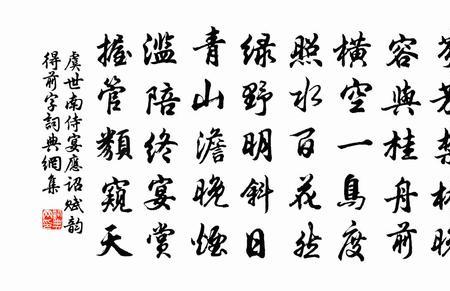 芬芳禁林晚
容與桂舟前
橫空一鳥度
照水百花然
绿野明斜日
青山澹晚煙
濫陪终宴賞
握管類窺天
虞世南侍宴應詔賦韵
得前字詞典網集